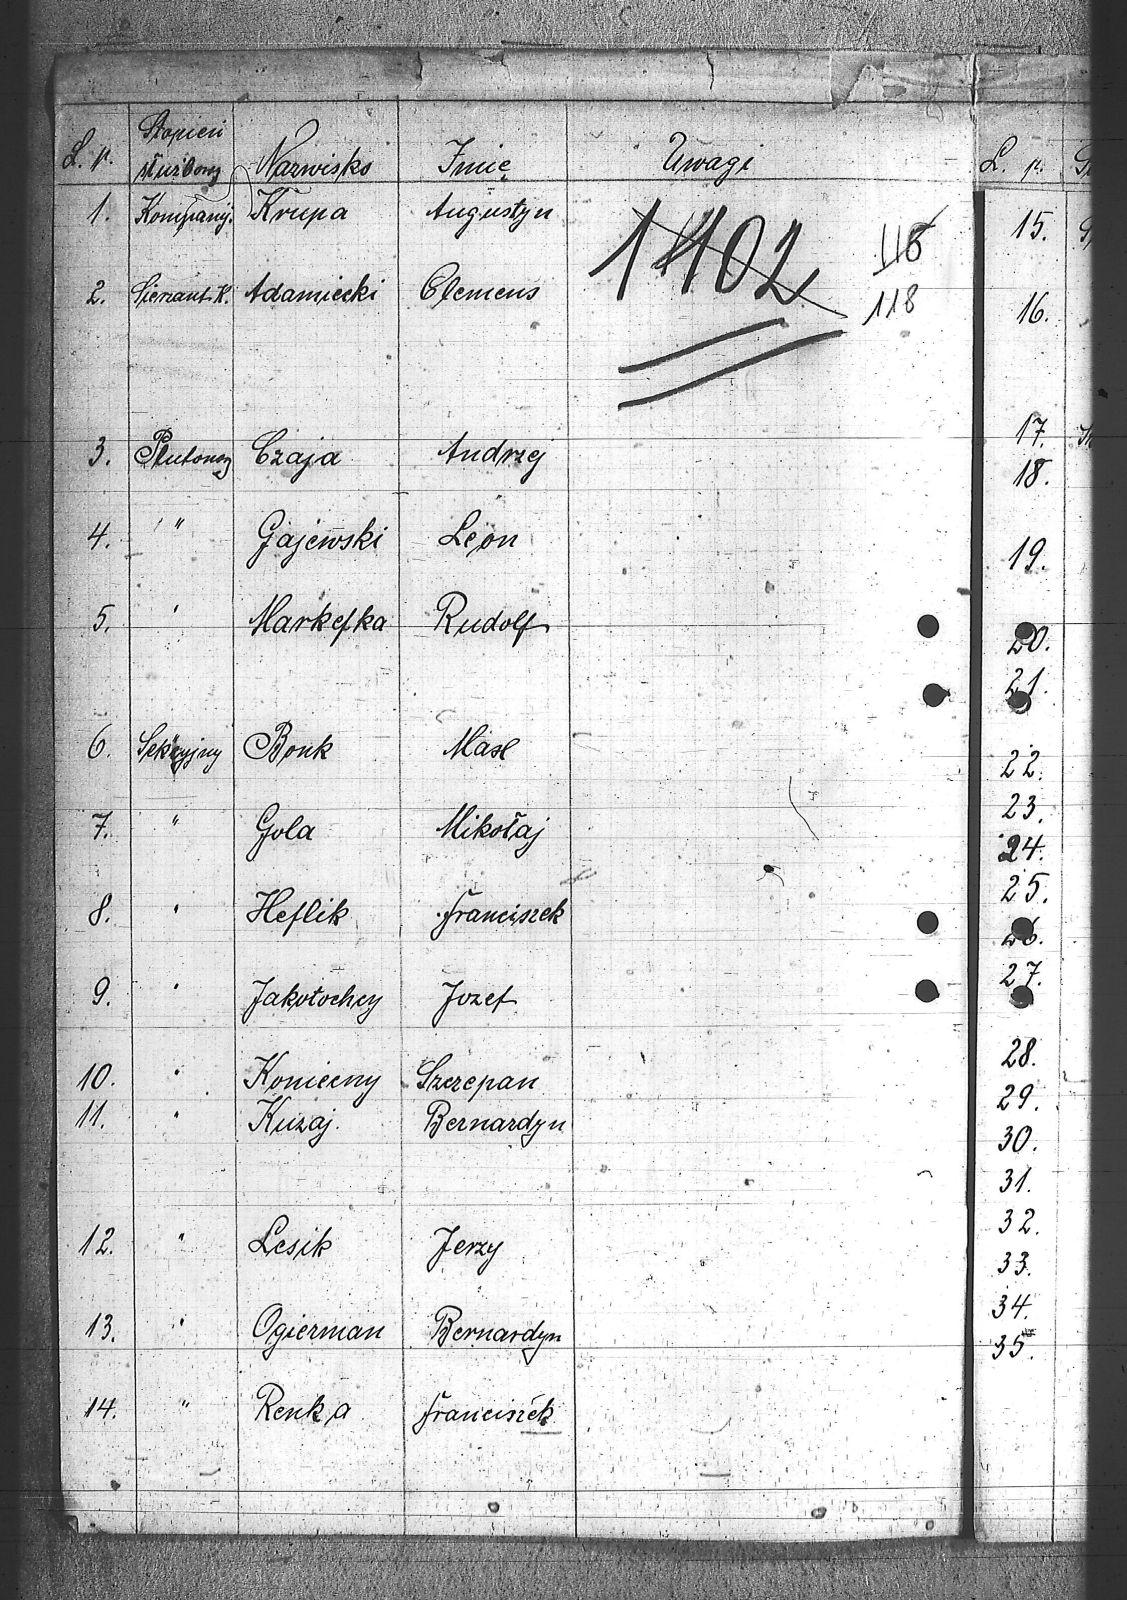 L. p. Stopień służbowy Nazwisko Imię Uwagi
1. Kompanij. Krupa Augustyn 1402 116
2. Sierzant. K. Adamiecki Clemens 118
3. Plutonowy Czaja Andrzej
4. " Gajewski Leon
5. ' Markefka Rudolf
6. Sekcyjny Bonk Max
7. " Gola Mikołaj
8. ' Heflik Franciszek
9. ' Jozef
10. ' Koniecny Szczepan
11. ' Kuzaj. Bernardyn
12. " Lesik Jerzy
13. ' Ogierman Bernardyn
14. " Renka Franciszek
L. p.
15.
16.
17.
18.
19.
20.
21.
22.
23.
24.
25.
26.
27.
28.
29.
30.
31.
32.
33.
34.
35.